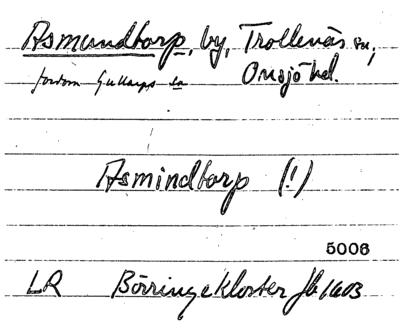 Asmundtorp, by, Trollenäs sn,
fordom Gullarps sn Onsjö hd.
Asmindtorp (!)
5006
LR Börringekloster Jb 1603